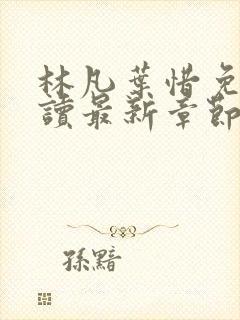 林凡葉惜免
讀最新章節
孫黯